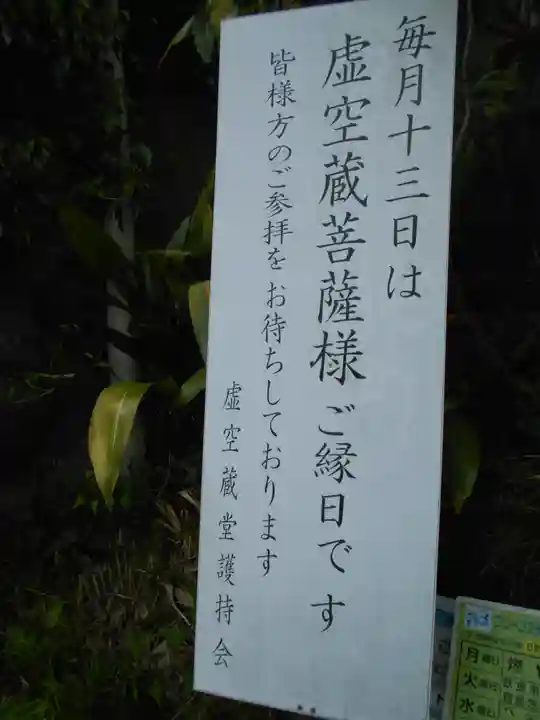 毎月十三日は
虚空蔵菩薩様ご縁日です
皆様方のご参拝をお待ちしております
虚空蔵堂護持会
月曜日
火曜日
水曜日